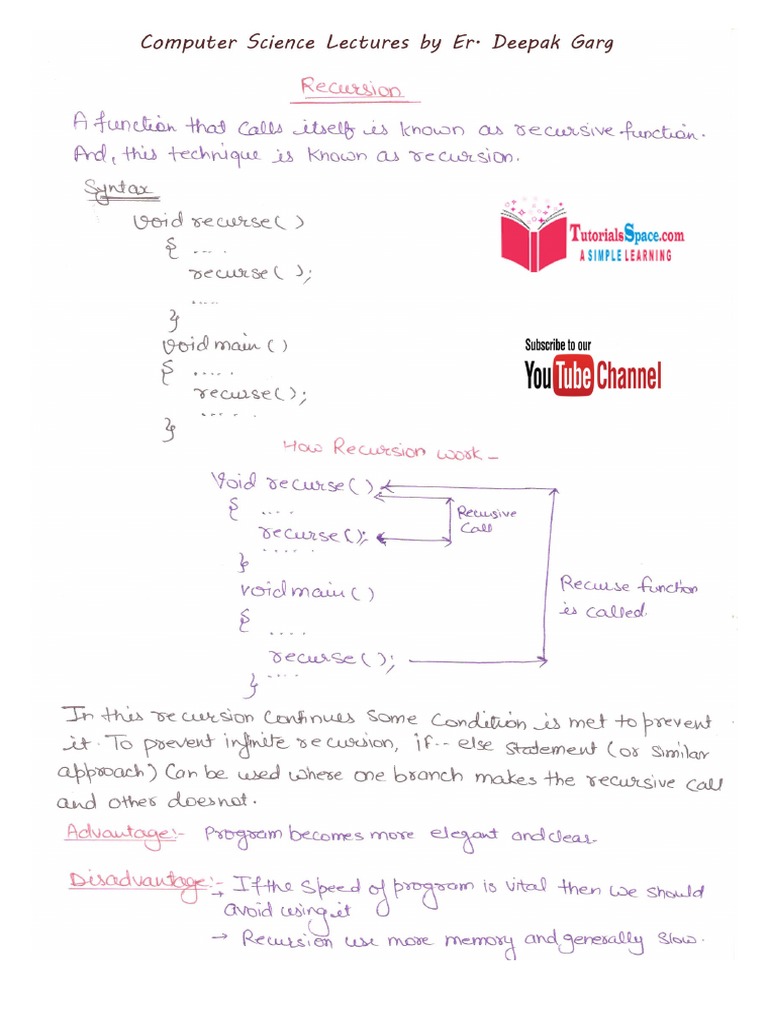 Computer Science Lectures by Er. Deepak Garg
Recursion
A function that calls itself is known as recursive function.
And, this technique is known as recursion.
Syntax
void recurse( )
{ ....
recurse( );
....
}
void main ( )
{ .....
recurse( );
......
}
TutorialsSpace.com
A SIMPLE LEARNING
Subscribe to our
YouTube Channel
How Recursion work -
void recurse( )
{ ....
recurse( );
.....
}
void main ( )
{
....
recurse( );
....
}
Recursive
Call
Recurse function
is called
In this recursion continues some condition is met to prevent
it. To prevent infinite recursion, if -- else statement (or similar
approach) Can be used where one branch makes the recursive call
and other doesnot.
Advantage:- Program becomes more elegant and clear.
Disadvantage:-
→ If the speed of program is vital then we should
avoid using it
→ Recursion use more memory and generally slow.